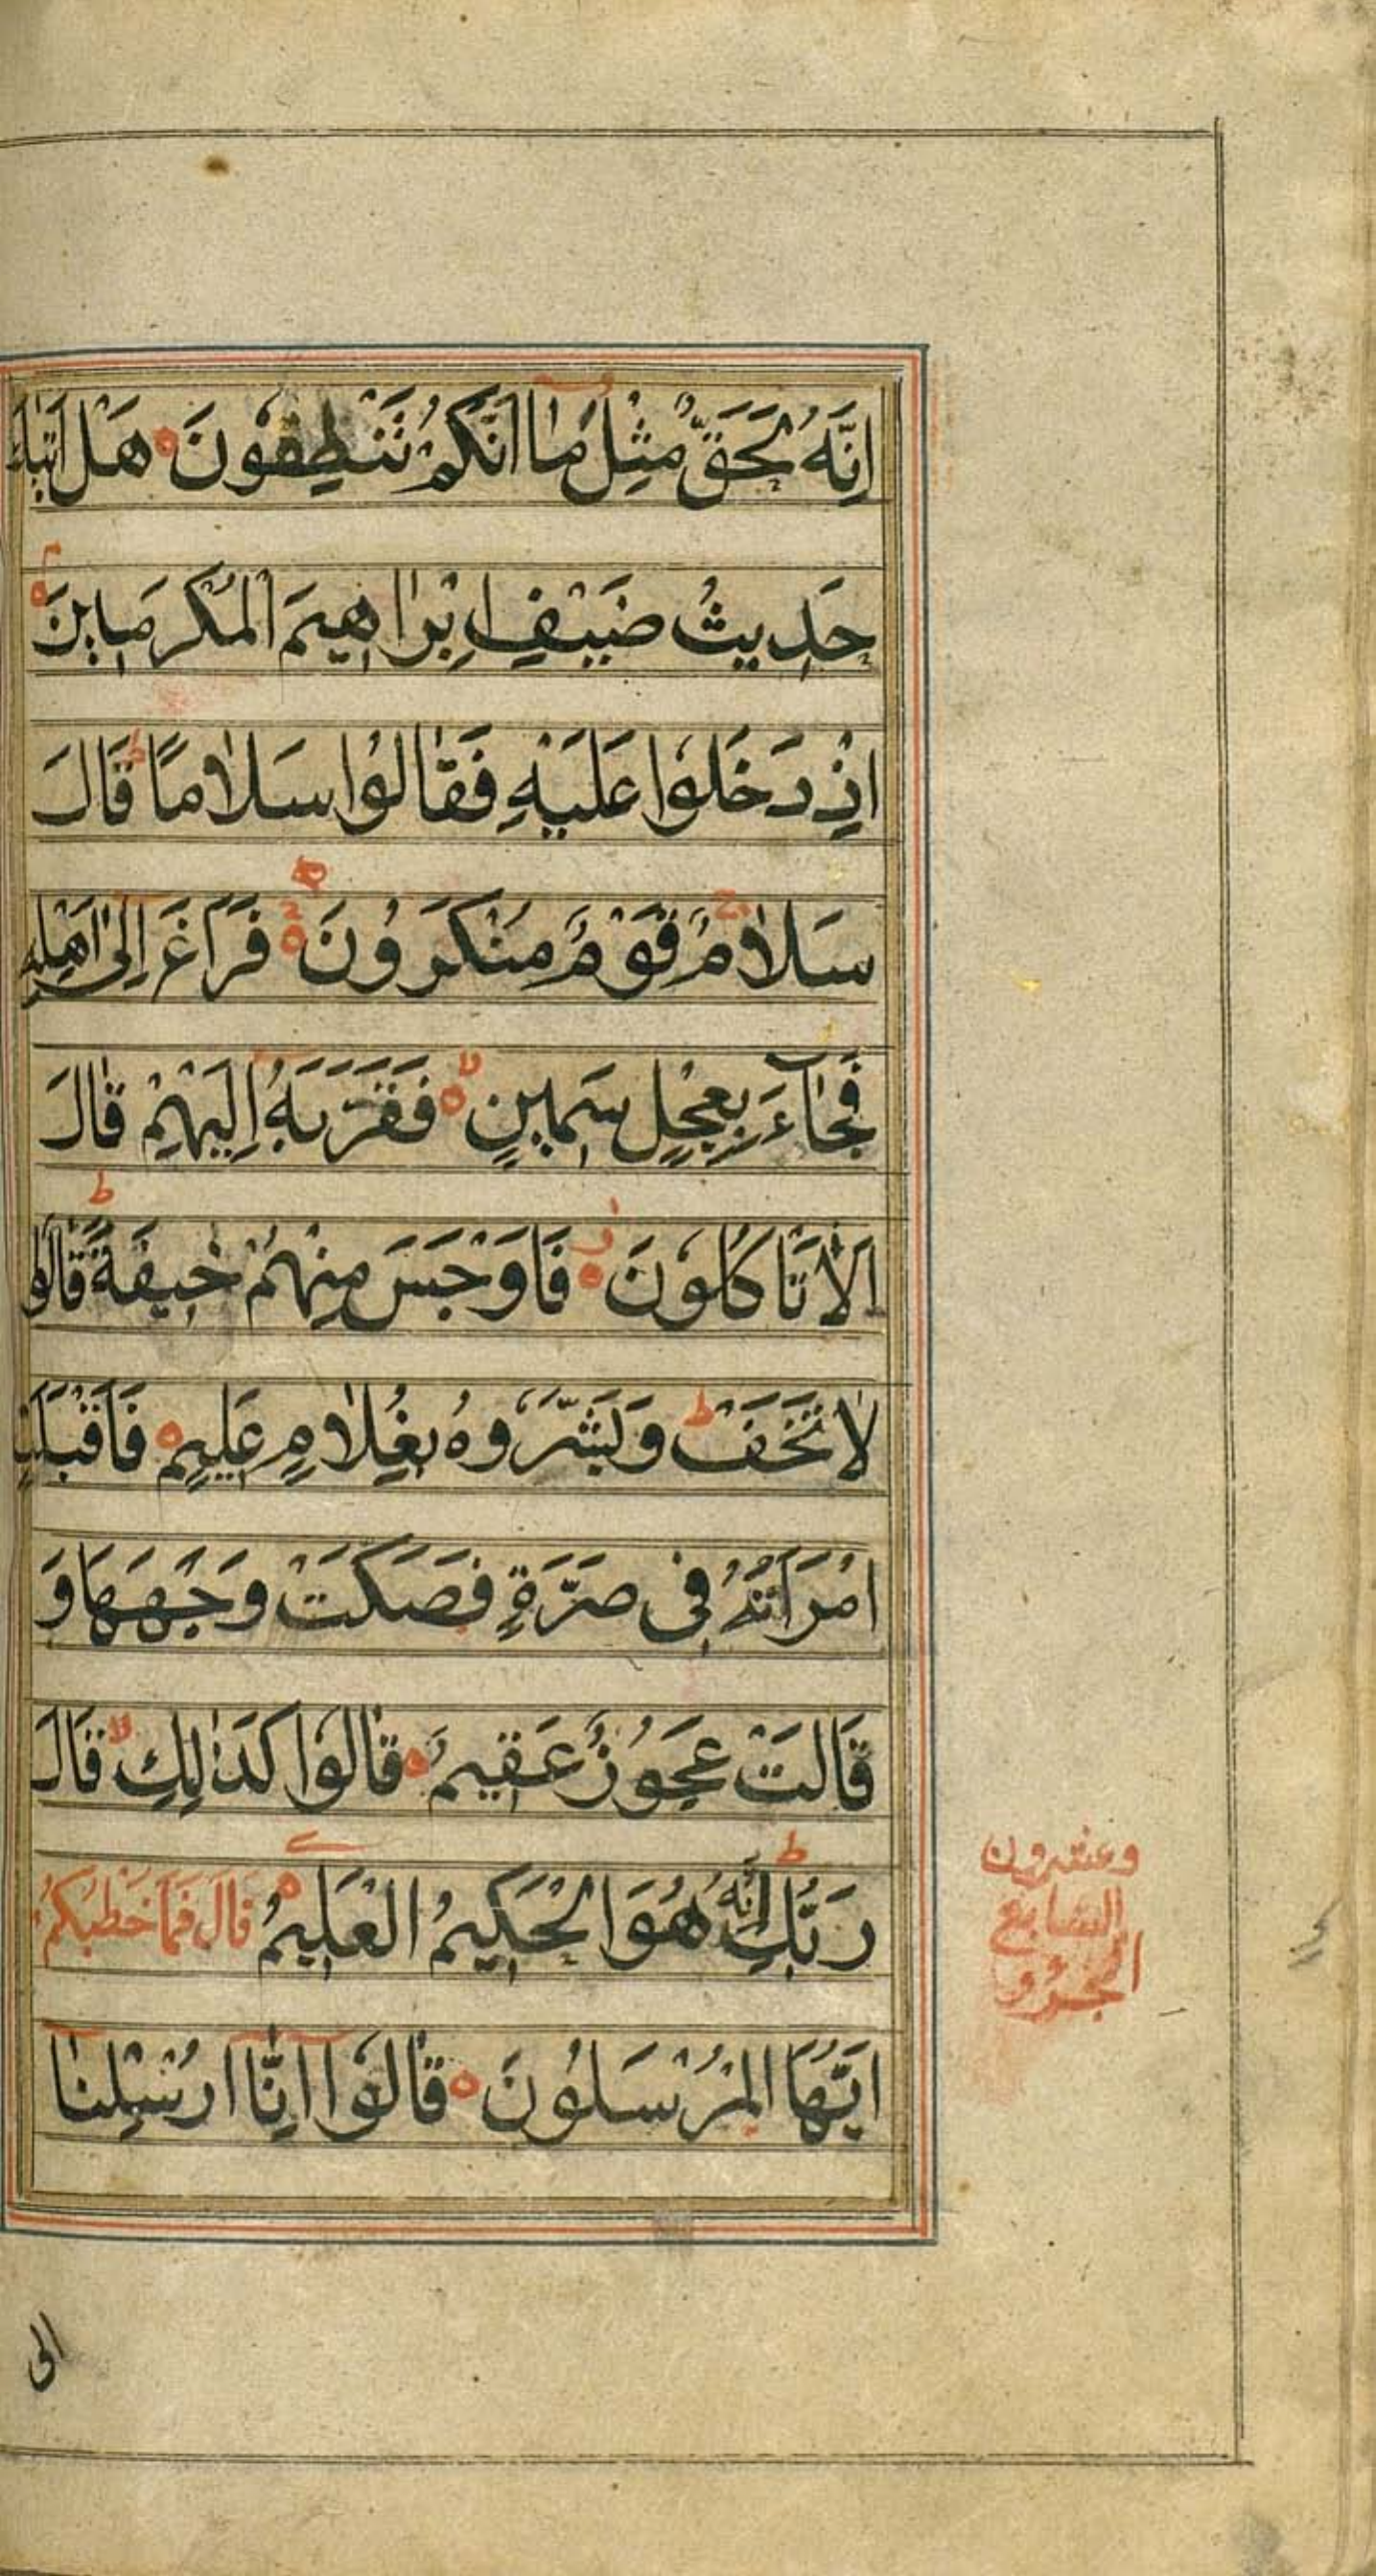 اِنَّهُ لَحَقٌّ مِّثْلَ مَا اَنَّكُمْ تَنْطِقُوْنَ هَلْ اَتٰىكَ
حَدِيثُ ضَيْفِ اِبْرَاهِيمَ الْمُكْرَمِينَ
اِذْ دَخَلُوْا عَلَيْهِ فَقَالُوْا سَلَامًا ط قَالَ
سَلَامٌ ج قَوْمٌ مُنْكَرُوْنَ فَرَاغَ اِلٰى اَهْلِهِ
فَجَاءَ بِعِجْلٍ سَمِينٍ لا فَقَرَّبَهُ اِلَيْهِمْ قَالَ
اَلَا تَاكُلُوْنَ ز فَاَوْجَسَ مِنْهُمْ خِيفَةً ط قَالُوْا
لَا تَخَفْ ط وَبَشَّرُوْهُ بِغُلَامٍ عَلِيمٍ فَاَقْبَلَتِ
امْرَاَتُهُ فِى صَرَّةٍ فَصَكَّتْ وَجْهَهَا وَ
قَالَتْ عَجُوْزٌ عَقِيمٌ قَالُوْا كَذٰلِكِ لا قَالَ
رَبُّكِ ط اِنَّهُ هُوَ الْحَكِيمُ الْعَلِيمُ قَالَ فَمَا خَطْبُكُمْ
اَيُّهَا الْمُرْسَلُوْنَ قَالُوْا اِنَّا اُرْسِلْنَا
وعشرون
السابع
الجزو
الى